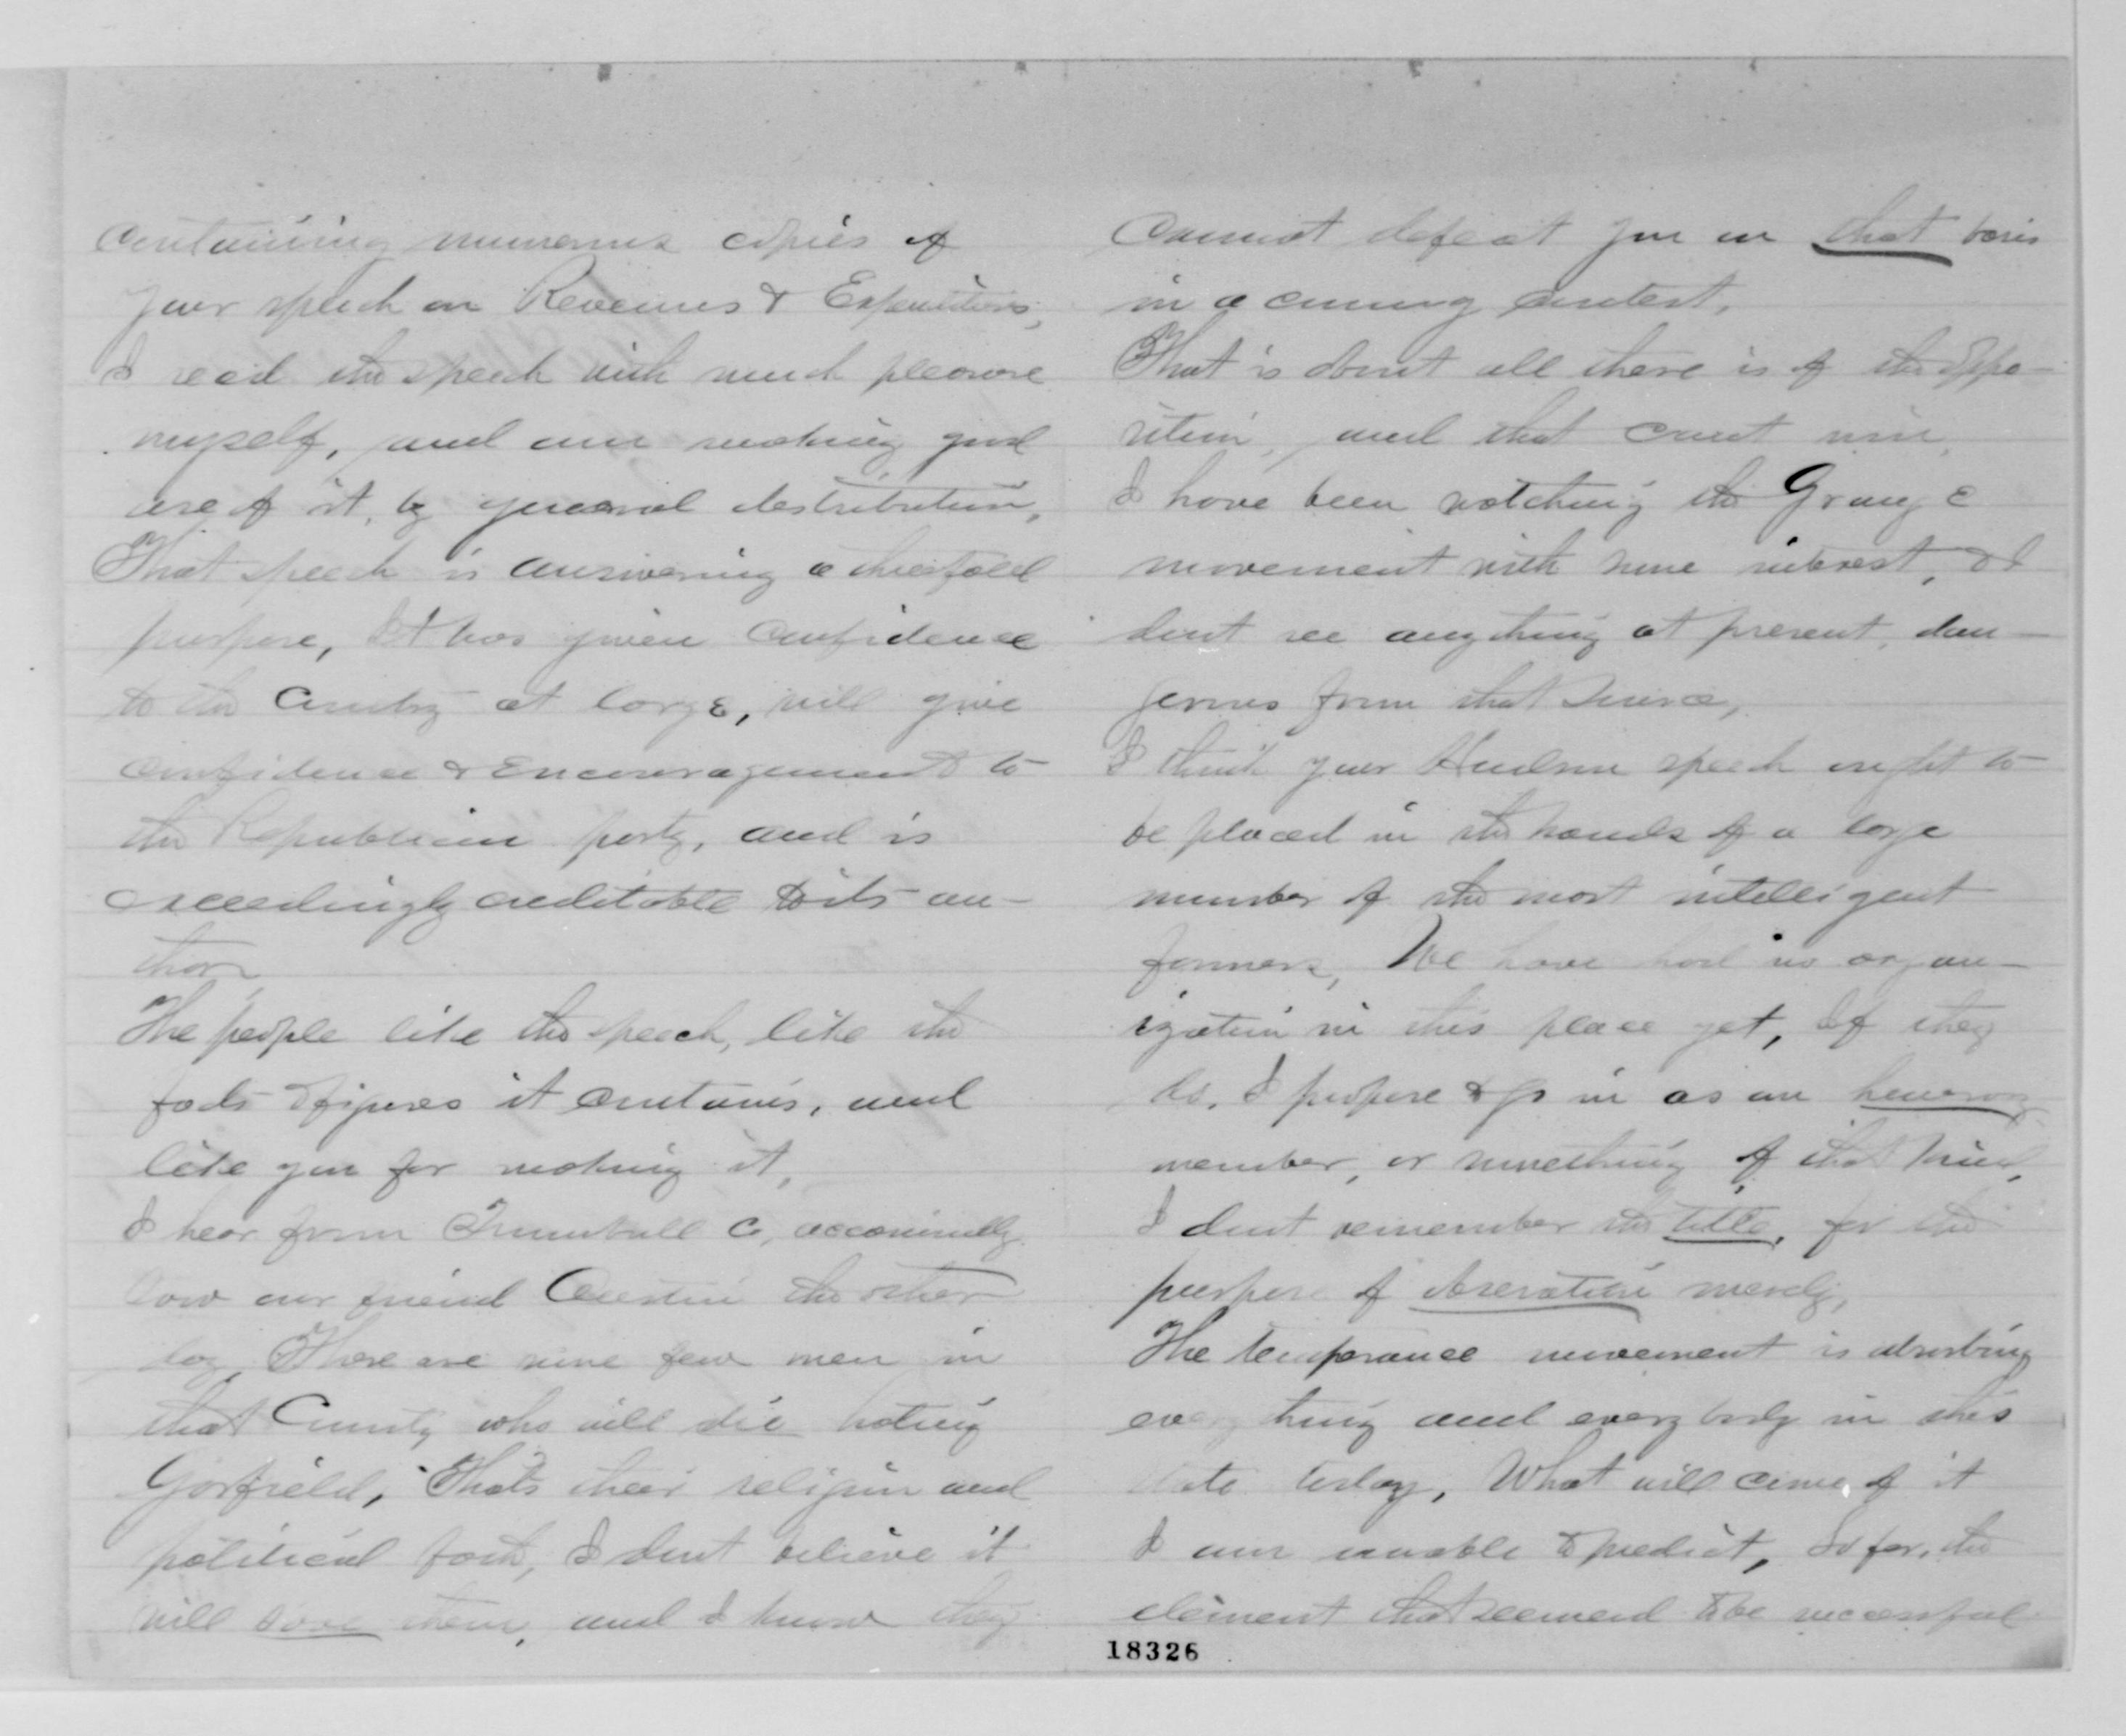 containing numerous copies of
your speech on Revenues & Expenditures,
I read the speech with much pleasure
myself, and am making good
use of it, by general distribution,
That speech is answering a threefold
purpose, It has given confidence
to the Country at large, will give
confidence & encouragement to
the Republican party, and is
exceedingly creditable to its au-
thor,
The people like the speech, like the
facts & figures it contains, and
like you for making it,
I hear from Trumbull Co, occasionally
saw our friend Austin the other
day, There are some few men in
that County who will die hating
Garfield, That's their religion and
political faith, I dont believe it
will save them, and I know they
Cannot defeat you on that basis
in a coming contest,
That is about all there is of the oppo-
sition, and that cant win,
I have been watching the Grange
movement with some interest, & I
dont see anything at present, dan-
gerous from that source,
I think your Hudson speech ought to
be placed in the hands of a large
number of the most intelligent
farmers, We have had no organ-
ization in this place yet, If they
do, I propose to go in as an honorary
member, or something of that kind,
I dont remember the title, for the
purpose of observation merely,
The temperance movement is absorbing
every thing and every body in this
state today, What will come of it
I am unable to predict, So far, the
element that seemed to be successful
18326